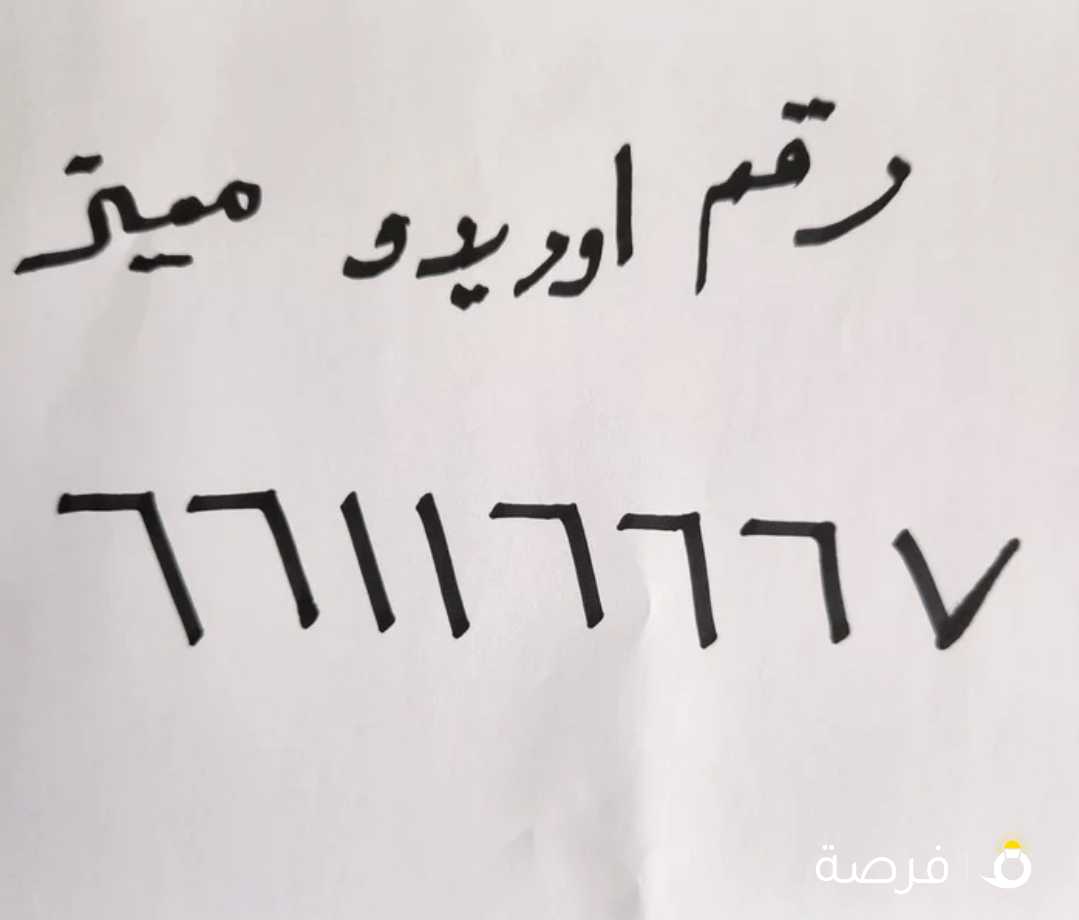 رقم اوريدو مميز
٦٦١١٦٦٦٧
فرصة